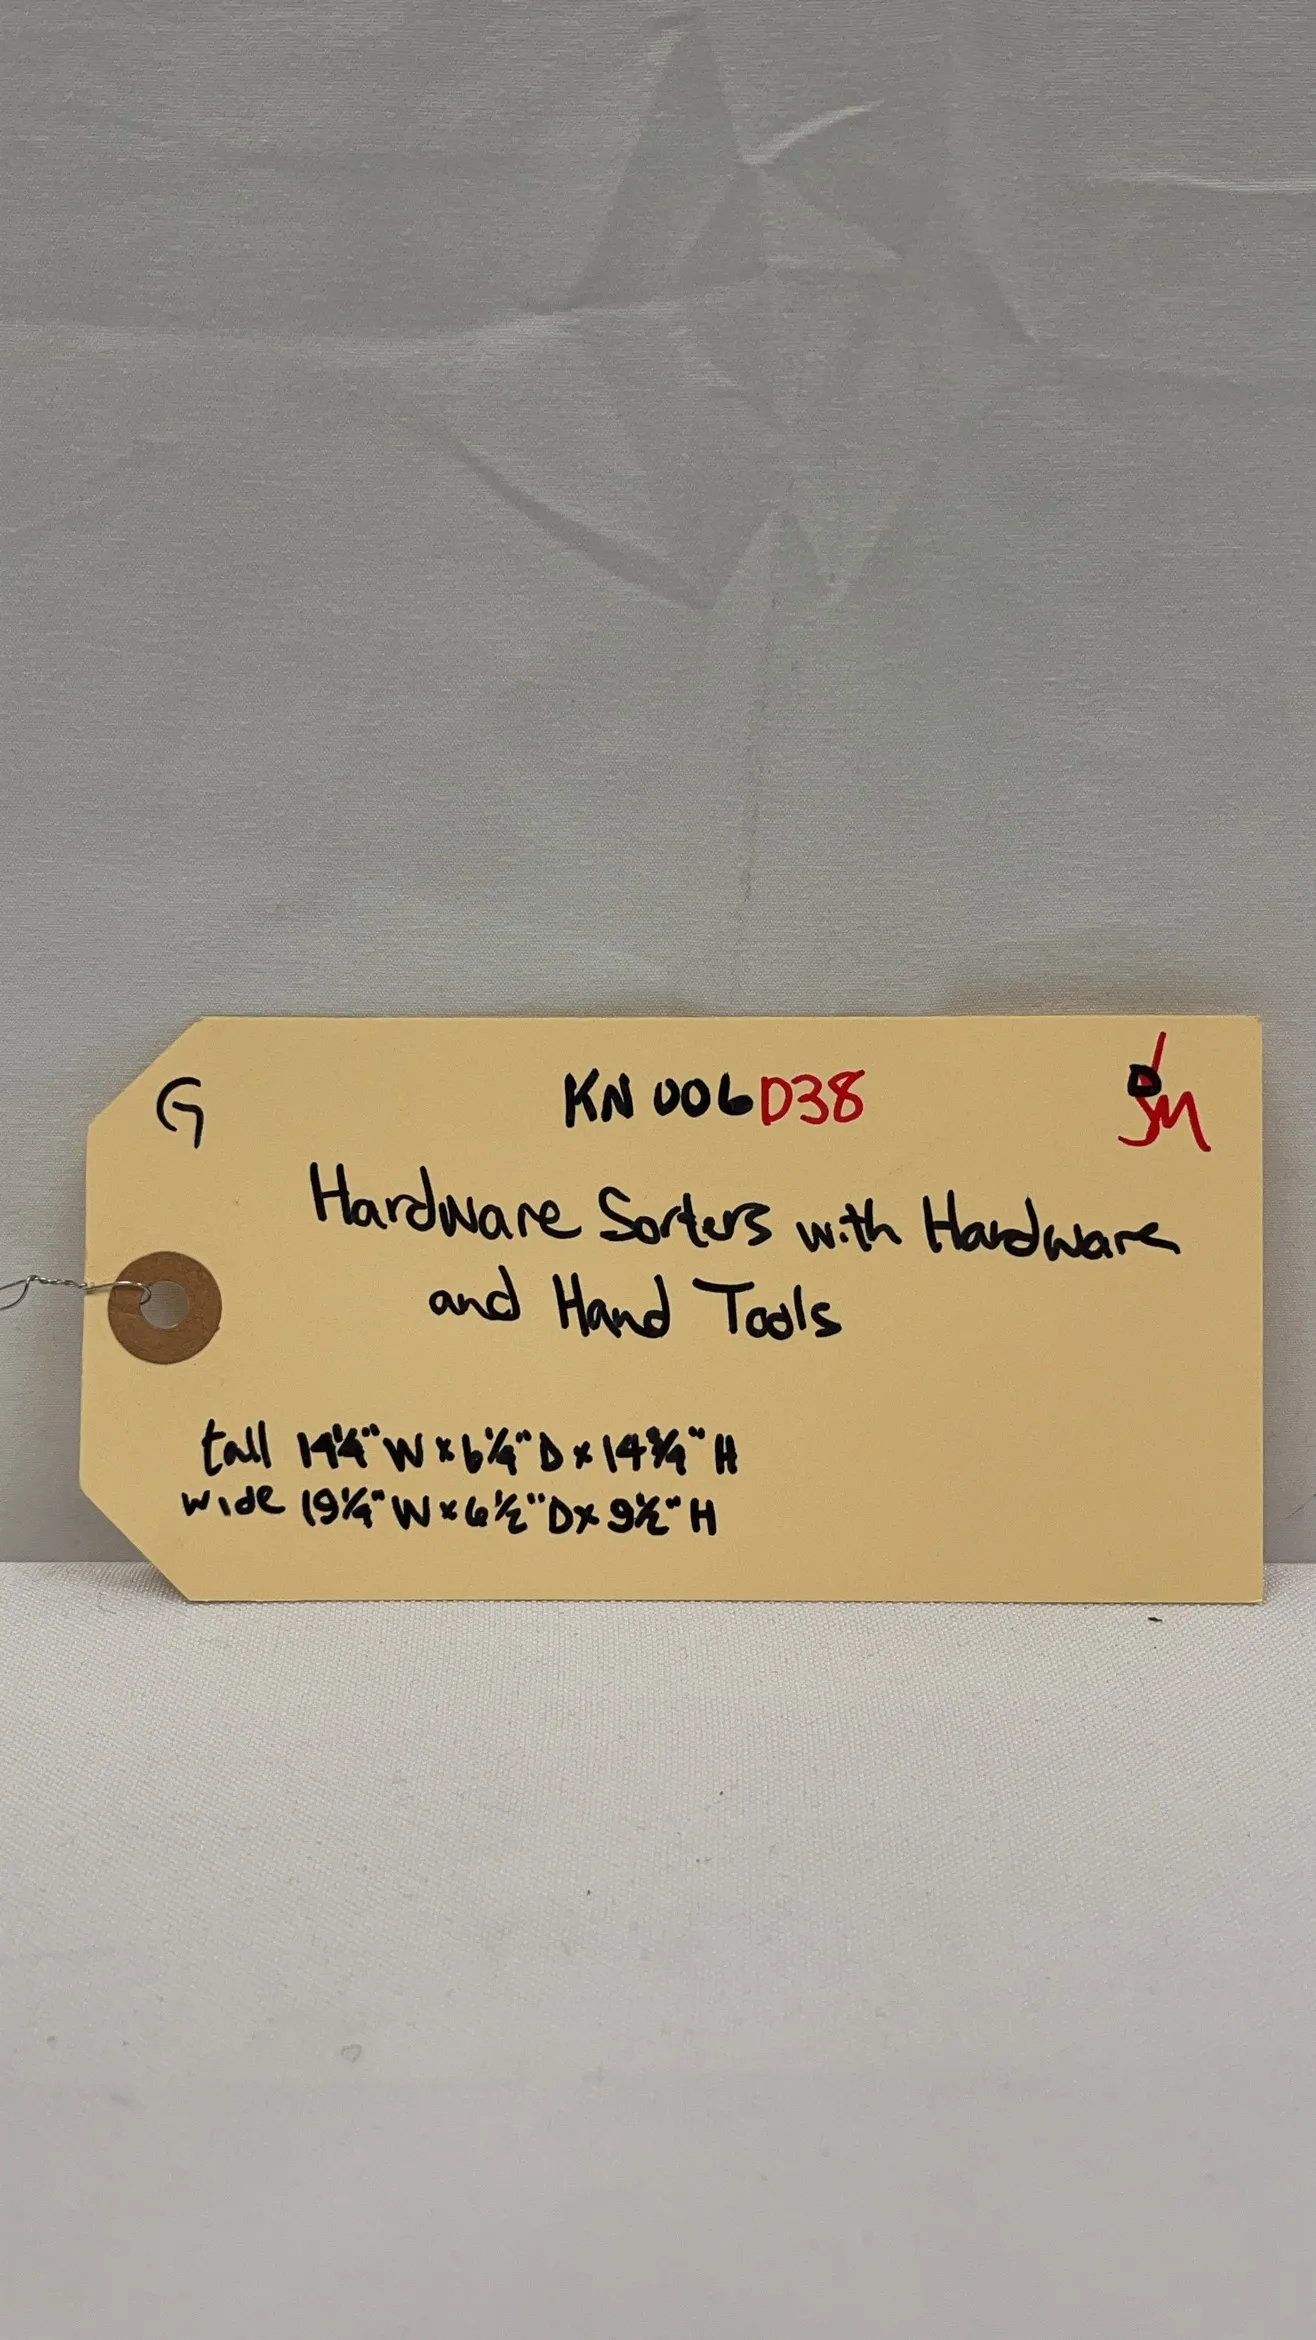 G
KN006D38
Hardware Sorters with Hardware
and Hand Tools
tall 14¼" W x 6¼" D x 14¾" H
wide 19¼" W x 6½" D x 9½" H